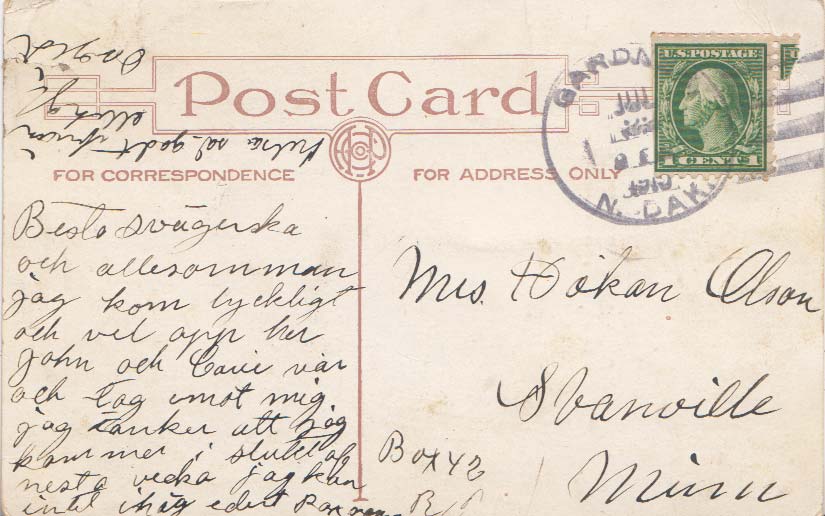 Post Card
FOR CORRESPONDENCE
FOR ADDRESS ONLY
U.S. POSTAGE
1 CENTS 1
GARDN
JUL
N. DAK.
Besta svägerska
och allesamman
jag kom lyckligt
och vel opp her
John och Carie var
och tog imot mig
jag tanker att jag
kommer i slutet af
nesta vecka jag kan
intet ihåg edert Box
helsa så godt
Mrs. Håkan Olson
Swanville
Minn
Box 42
R